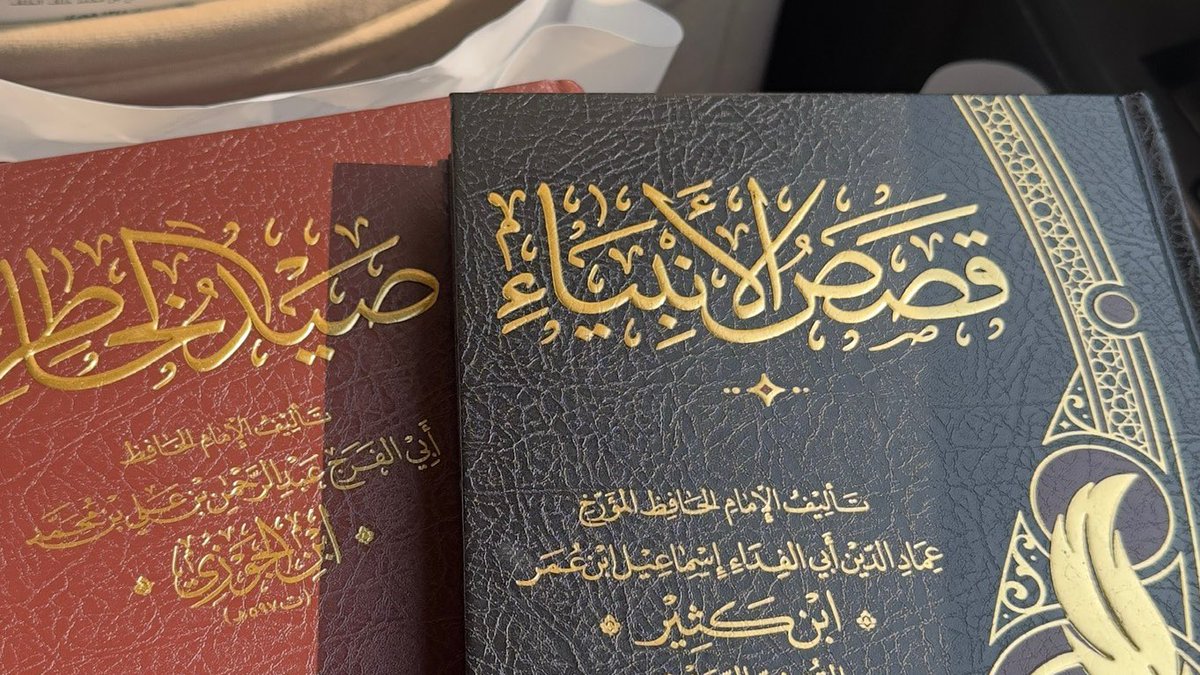 قصص الأنبياء
تأليف الإمام الحافظ المؤرخ
عماد الدين أبي الفداء إسماعيل ابن عمر
ابن كثير
صيد الخاطر
تأليف الإمام الحافظ
أبي الفرج عبد الرحمن بن علي بن محمد
ابن الجوزي
(ت ٥٩٧هـ)